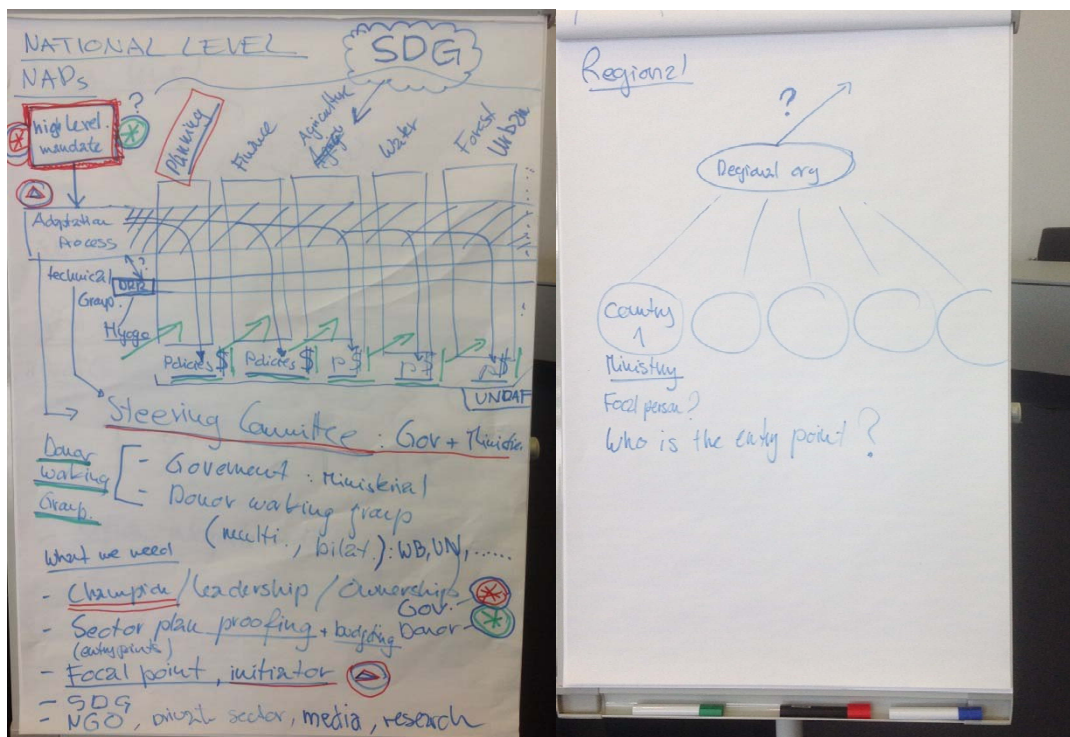 NATIONAL LEVEL
SDG
NAPs
?
high level
mandate
Planning
Finance
Agriculture
Water
Forest
Urban
Adaptation
Process
?
technical
Group.
DRR
Hyogo
Policies $
Policies $
P $
P $
P $
UNDAF
Steering Committee : Gov + Ministries
Donor
Working
Group.
- Government : Ministerial
- Donor working group
(multi., bilat.) : WB, UN, ......
What we need
- Champion / leadership / Ownership
Gov.
- Sector plan proofing + budgeting
Donor
(entry points)
- Focal point, initiator
- SDG
- NGO, private sector, media, research
Regional
?
Regional org
Country
1
Ministry
Focal person?
Who is the entry point?